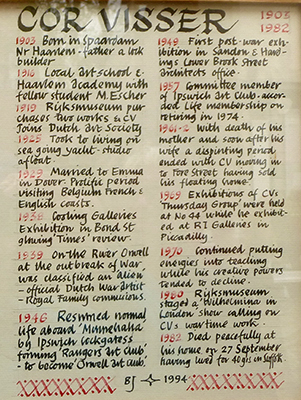 COR VISSER 1903
1982
1903 Born in Spaarndam
Nr Haarlem - father a lock
builder
1916 Local art school &
Haarlem Academy with
fellow student M. Escher
1919 Rijksmuseum pur-
chases two works & CV
Joins Dutch Art Society
1925 Took to living on
sea going yacht-studio
afloat.
1929 Married to Emma
in Dover. Prolific period
visiting Belgium French &
English coasts.
1938 Cooling Galleries
Exhibition in Bond St
glowing 'Times' review.
1939 On the River Orwell
at the outbreak of War,
was classified an alien
- official Dutch war artist
- Royal Family commissions.
1946 Resumed normal
life aboard 'Minnehaha'
by Ipswich lockgates
forming 'Rangers art club'
- to become Orwell art club.
1949 First post-war exhi-
bition in Sanden & Hard-
ings Lower Brook Street
architects office.
1957 Committee member
of Ipswich Art Club - accor-
ded Life membership on
retiring in 1974.
1961-2 With death of his
mother and soon after his
wife a dispiriting period
ended with CV moving in
to Fore Street having sold
his floating home.
1969 Exhibitions of CVs
'Thursday Group' were held
at No 44 while he exhibit-
ed at RI Galleries in
Piccadilly.
1970 Continued putting
energies into teaching
while his creative powers
tended to decline.
1980 Rijksmuseum
stages a 'Wilhelmina in
London' show calling on
CVs wartime work.
1982 Died peacefully at
his home on 27 September
having lived for 40 yrs in Suffolk
1994